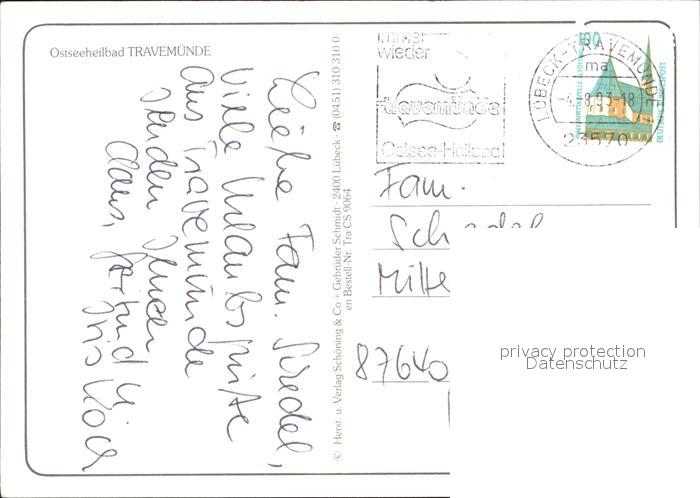 Ostseeheilbad TRAVEMÜNDE
Liebe Fam.
Viele Urlaubsgrüße
aus Travemünde
senden Ihnen
Claus, Gertrud u.
Iris Koch
© Herst. u. Verlag Schöning & Co + Gebrüder Schmidt · 2400 Lübeck · ☎ (0451) 310 310 0
en Bestell-Nr. Tra CS 9064
immer
wieder
travemünde
Ostsee-Heilbad
LÜBECK-TRAVEMÜNDE
ma
-4.8.93-18
23570
100
DEUTSCHE BUNDESPOST
Fam.
87640
privacy protection
Datenschutz